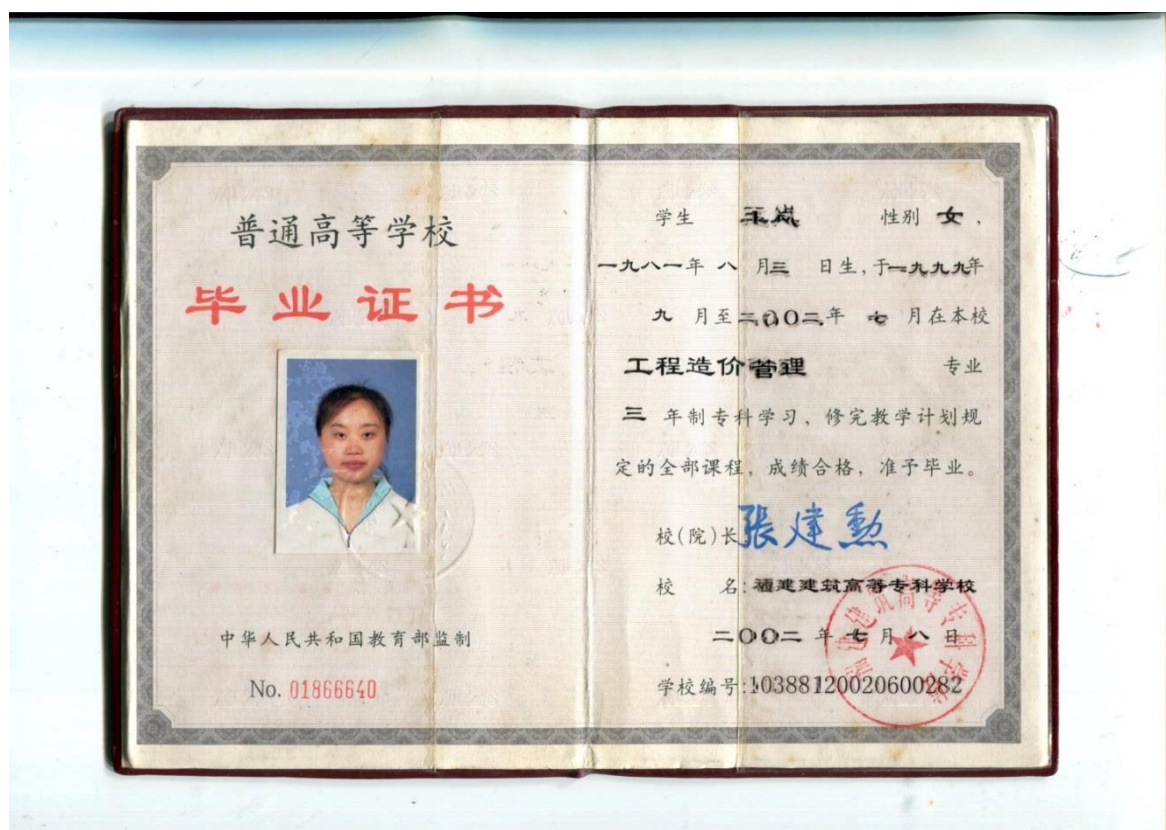 普通高等学校
毕业证书
中华人民共和国教育部监制
No. 01866640
学生 王岚 性别 女,
一九八一年 八 月三 日生,于一九九九年
九 月至二〇〇二年 七 月在本校
工程造价管理 专业
三 年制专科学习,修完教学计划规
定的全部课程,成绩合格,准予毕业。
校(院)长 张建勲
校 名:福建建筑高等专科学校
二〇〇二 年 七 月 八 日
学校编号:10388120020600282
福建建筑高等专科学校